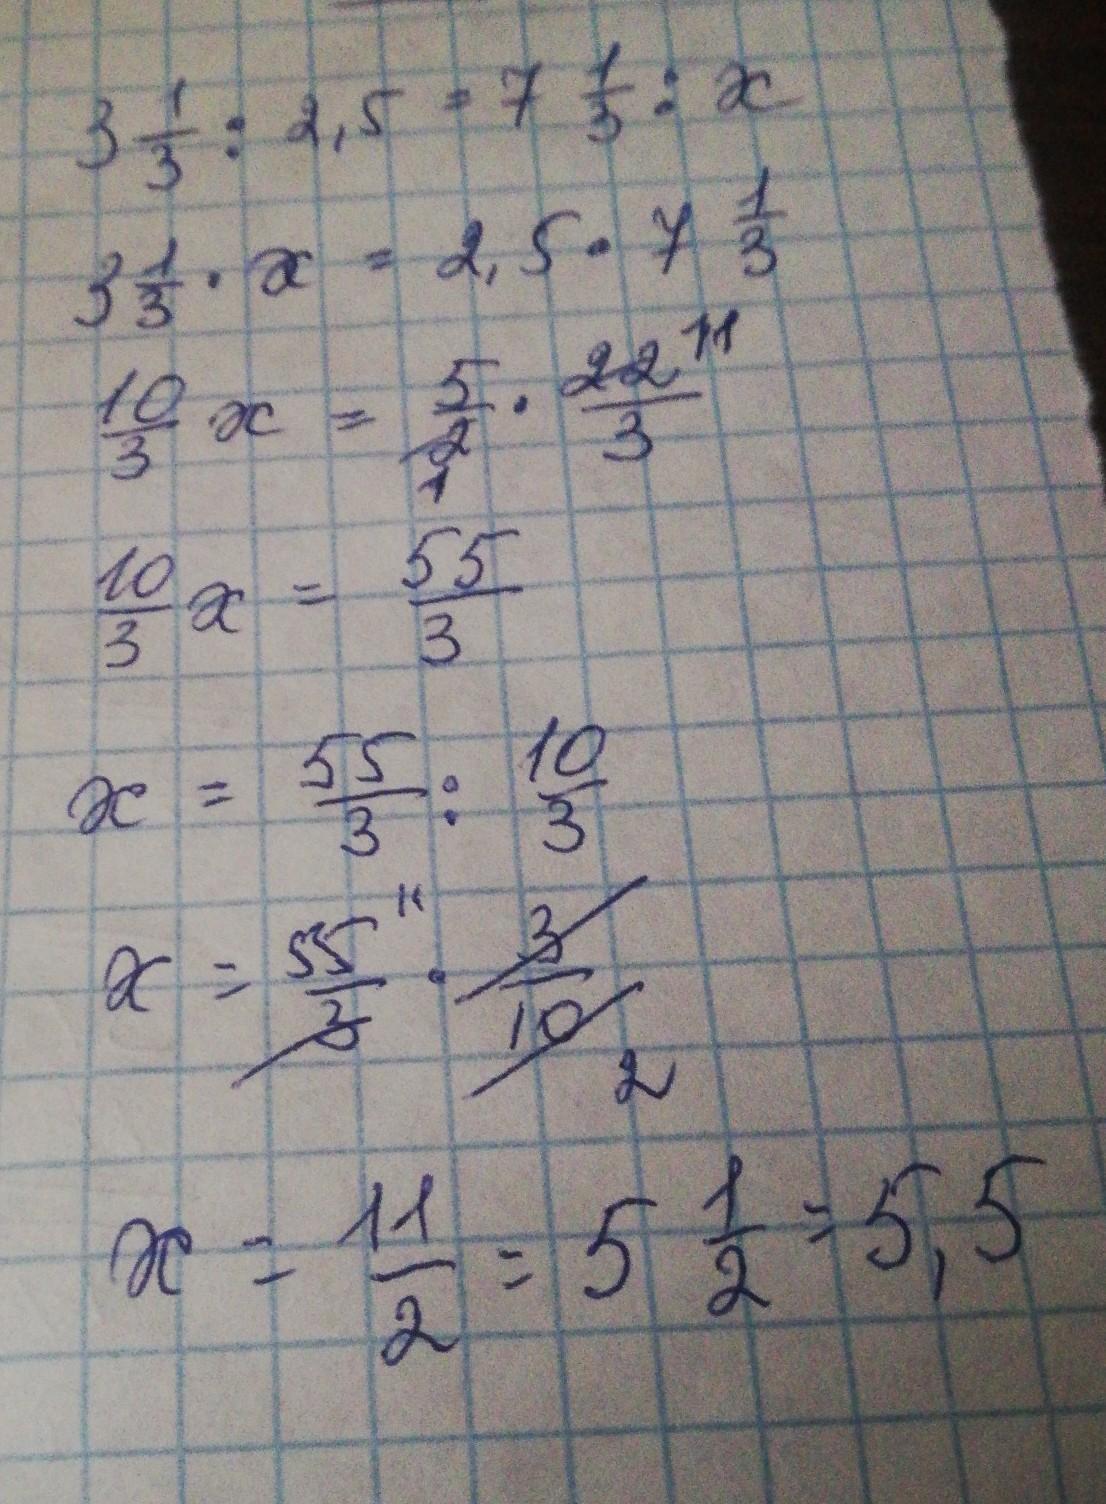 3 1/3 : 2,5 = 7 1/3 : x
3 1/3 · x = 2,5 · 7 1/3
10/3 x = 5/2 1 · 22 11/3
10/3 x = 55/3
x = 55/3 : 10/3
x = 55 11/3 · 3/10 2
x = 11/2 = 5 1/2 = 5,5